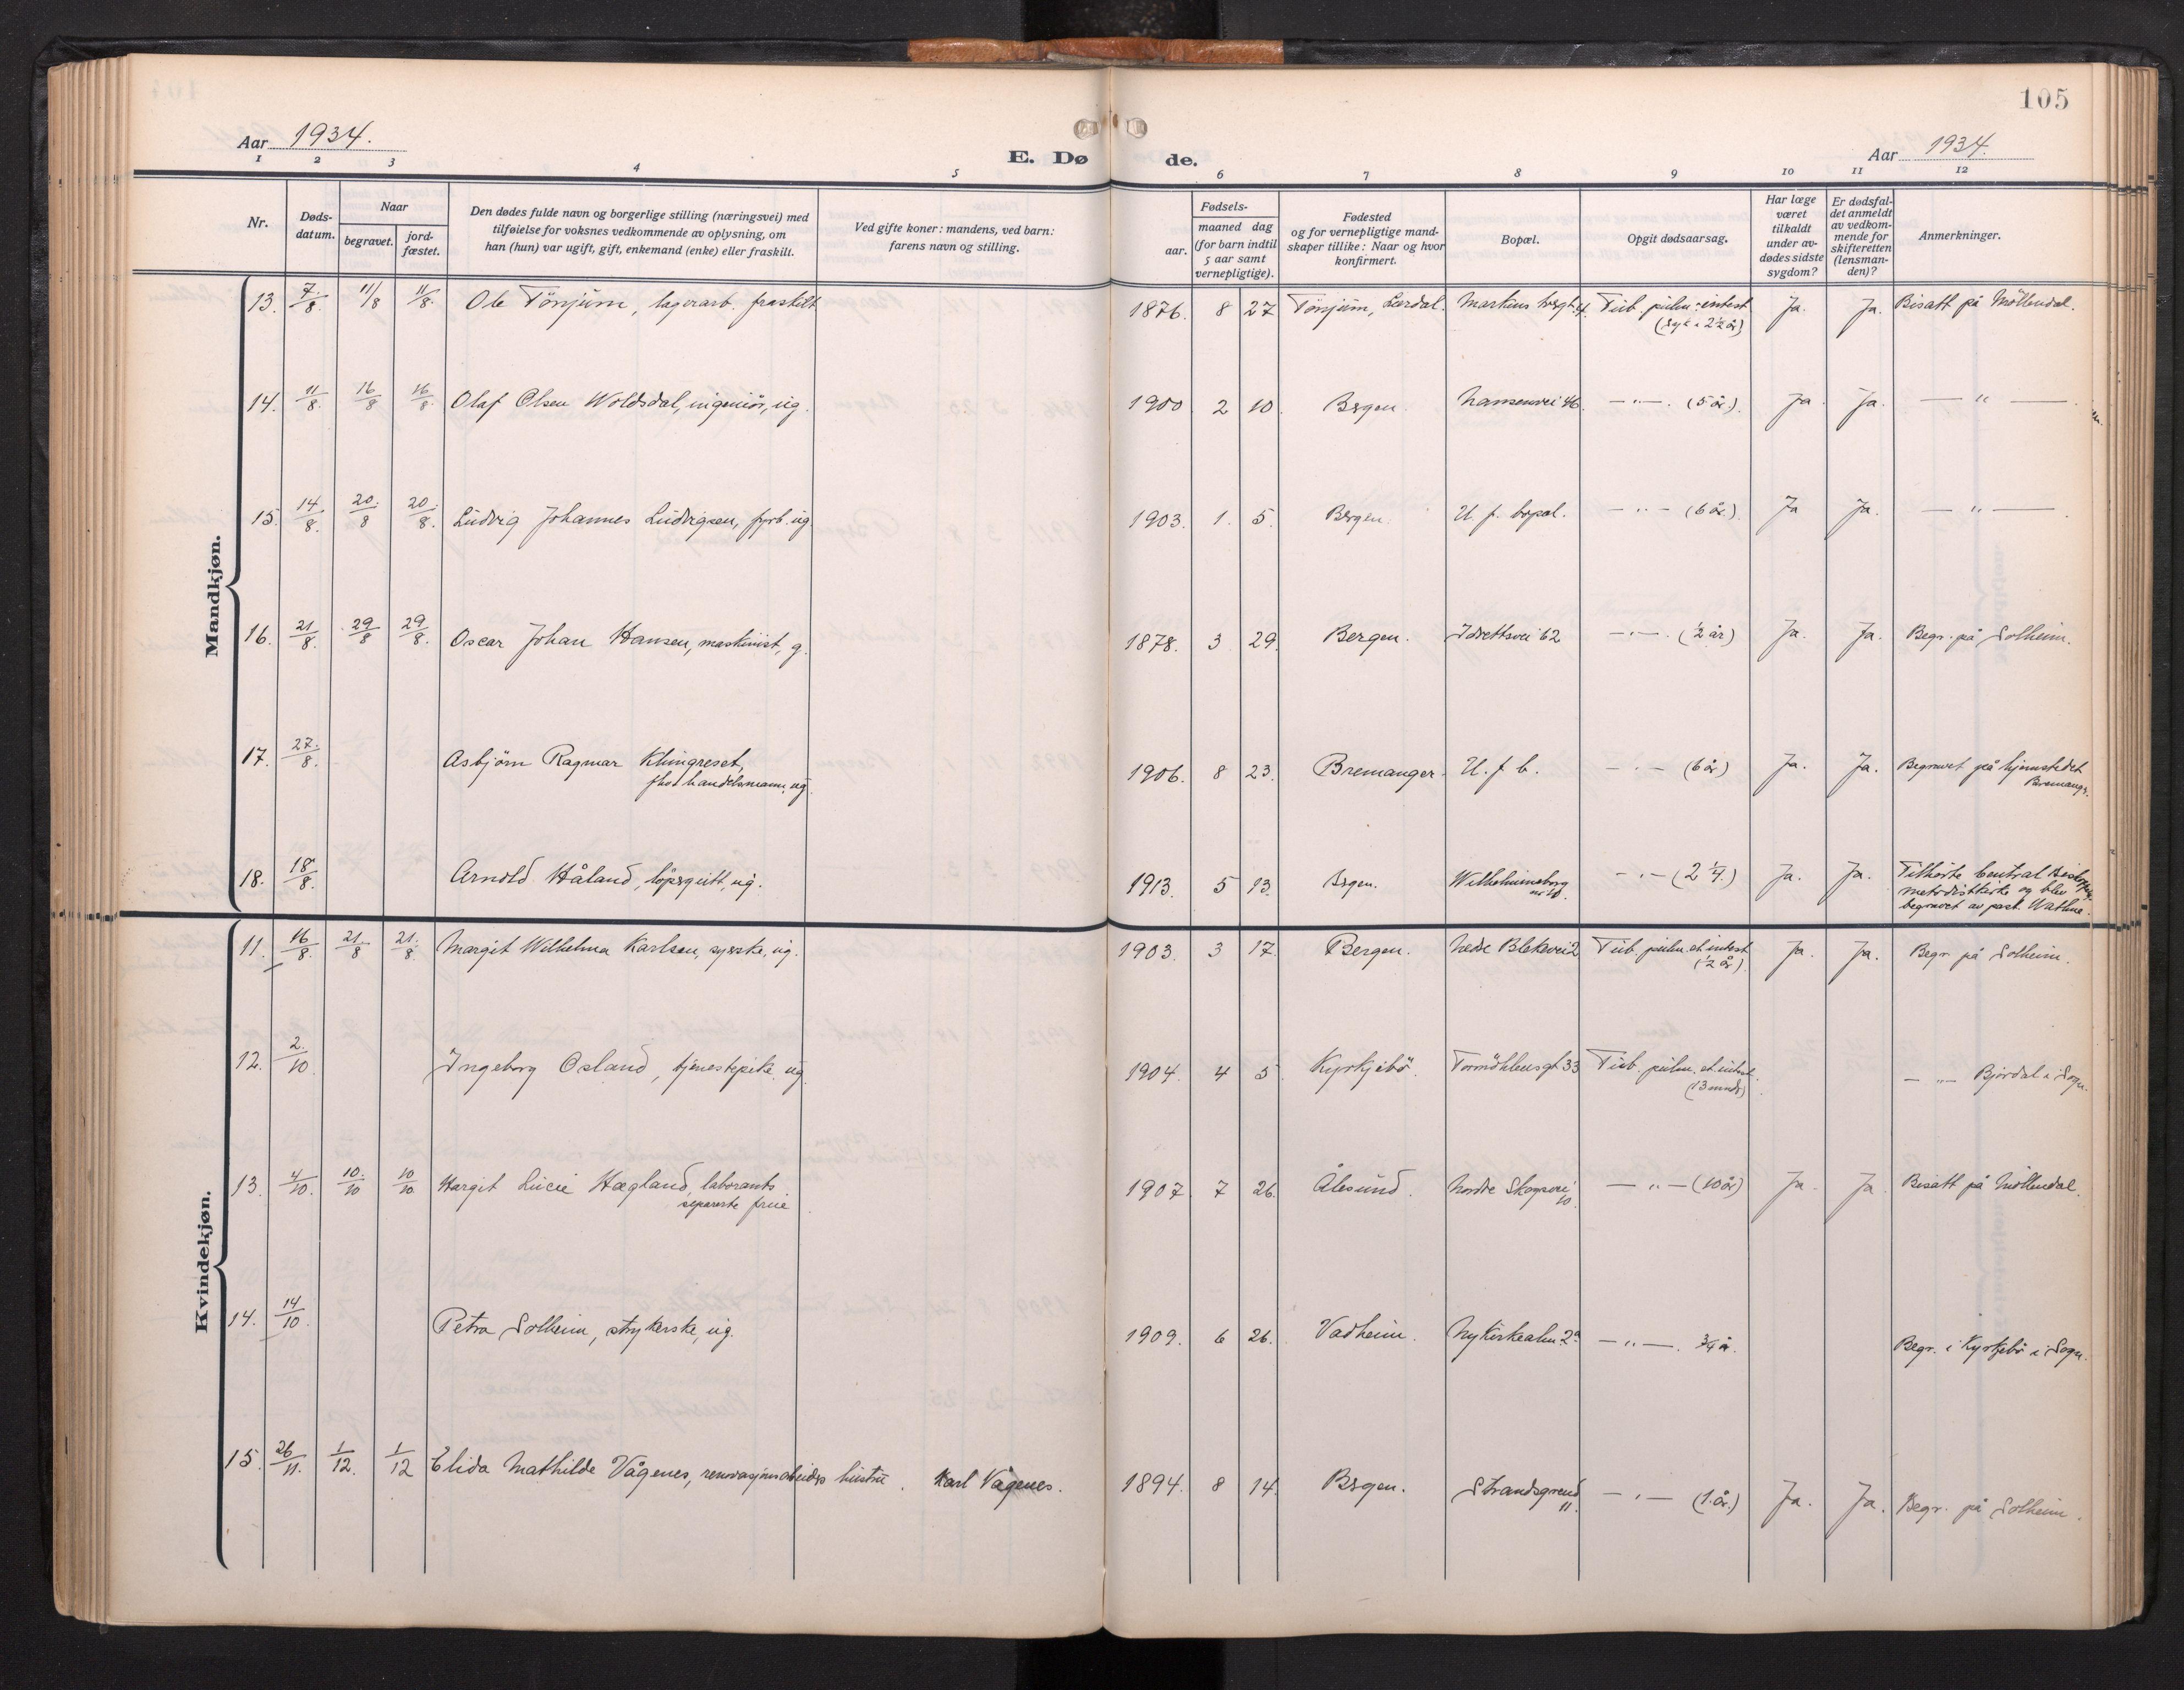 105
Aar 1934.
E. Døde.
Aar 1934.
1 2 3 4 5 6 7 8 9 10 11 12
Nr.
Døds-
datum.
Naar
begravet.
jord-
fæstet.
Den dødes fulde navn og borgerlige stilling (næringsvei) med
tilføielse for voksnes vedkommende av oplysning, om
han (hun) var ugift, gift, enkemand (enke) eller fraskilt.
Ved gifte koner: mandens, ved barn:
farens navn og stilling.
Fødsels-
aar.
maaned dag
(for barn indtil
5 aar samt
vernepligtige).
Fødested
og for vernepligtige mand-
skaper tillike: Naar og hvor
konfirmert.
Bopæl.
Opgit dødsaarsag.
Har læge
været
tilkaldt
under av-
dødes sidste
sygdom?
Er dødsfal-
det anmeldt
av vedkom-
mende for
skifteretten
(lensman-
den)?
Anmerkninger.
Mandkjøn.
13. 7/8 11/8 11/8. Ole Tönjum, lagerarb. fraskilt 1876. 8 27 Tönjum, Lærdal. Markus 4. Tub. pulm. intest Ja. Ja. Bisatt på Möllendal.
(syk i 2½ år)
14. 11/8. 16/8 16/8. Olaf Olsen Woldsdal, ingeniör, ug. 1900. 2 10. Bergen. Nansenvei 46. — " — (5 år). Ja. Ja. — " —
15. 14/8. 20/8 20/8. Ludvig Johannes Ludvigsen, fyrb. ug. 1903. 1. 5. Bergen. U. f. bopæl. — " — (6 år.) Ja Ja. — " —
16. 21/8. 29/8 29/8. Oscar Johan Hansen, maskinist, g. 1878. 3 29. Bergen. Idrettsvei 62 — " — (½ år) Ja. Ja. Begr. på Solheim.
17. 27/8. Asbjörn Ragnar Klungreset, 1906. 8 23. Bremanger. U. f. b. — " — (6 år) Ja. Ja. Begravet på hjemstedet
handelsmann, ug. Bremangr.
18. 18/8. Arnold Håland, löpegutt, ug. 1913. 5 13. Bergen. Wilhelmineborg — " — (2 ¼) Ja. Ja. Tilhörte Central
metodistkirke og blev
begravet av past. Wathne.
Kvindekjøn.
11. 16/8. 21/8 21/8 Margit Wilhelma Karlsen, syerske, ug. 1903. 3 17. Bergen. Nedre Blekevei 2 Tub. pulm. et intest Ja. Ja. Begr på Solheim.
(½ år).
12. 2/10. Ingeborg Osland, tjenestepike, ug. 1904. 4 5 Kyrkjebö. Tormöhlensgt 33 Tub. pulm. et intest. — " — Bjordal i Sogn.
(13 mndr)
13. 4/10. 10/10 10/10. Margit Lucie Hægland, laborants 1907. 7 26. Ålesund. Nordre Skogvei — " — (10 år) Ja. Ja. Bisatt på Möllendal.
separerte frue 10.
14. 14/10. Petra Solheim, strykerske, ug. 1909. 6 26. Vadheim. Nykirkealm. 2a — " —. ¾ år. Begr. i Kyrkjebö i Sogn.
15. 26/11. 1/12. 1/12 Elida Mathilde Vågenes, renovasjonsarbeiders hustru. Karl Vågenes. 1894. 8 14. Bergen. Strandsgrend — " — (1. år.) Ja. Ja. Begr. på Solheim.
11.